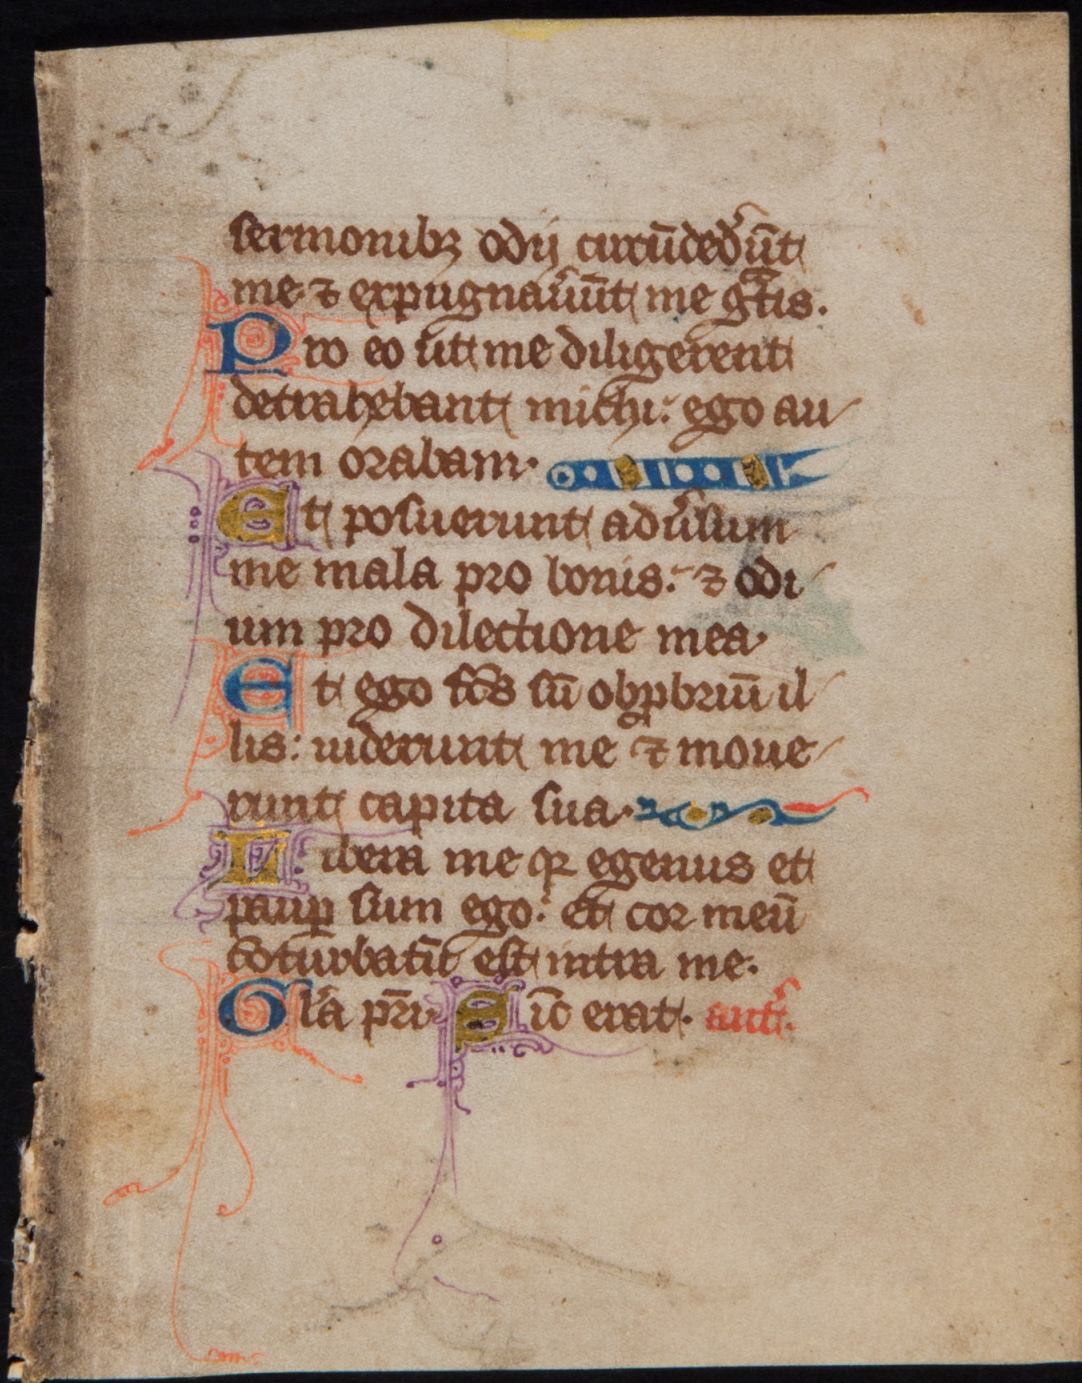 sermonibꝫ odij circūdedͬūt
me ⁊ expugnaͮūt me gͣtis.
Pro eo ut me diligerent
detrahebant michi: ego au
tem orabam.
Et posuerunt adͮsum
me mala pro bonis: ⁊ odi
um pro dilectione mea.
Et ego fc̄s sū obp̱briū il
lis: uiderunt me ⁊ moue
runt capita sua.
Libera me qꝛ egenus et
paup̱ sum ego: et cor meū
ↄturbatū est intra me.
Glͥa pr̄i Sic̄ erat. antͣ.